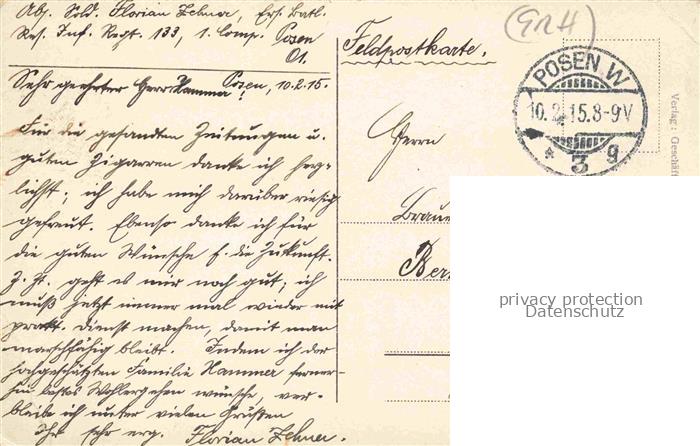 Abs. Sold. Florian Zehner, Ers. Batl.
Res. Inf. Regt. 133, 1. Comp. Posen
O1.
Feldpostkarte.
(GRH)
POSEN W
10.2.15.8-9V
* 3 g
Verlag: Geschäft
Posen, 10.2.15.
Sehr geehrter Herr Hammer!
Für die gesandten Zeitungen u.
guten Zigarren danke ich herz-
lichst; ich habe mich darüber riesig
gefreut. Ebenso danke ich für
die guten Wünsche f. die Zukunft.
Z. Zt. geht es mir noch gut; ich
muß jetzt immer mal wieder mit
prakt. Dienst machen, damit man
marschfähig bleibt. Indem ich der
hochgeschätzten Familie Hammer ferner-
hin bestes Wohlergehen wünsche, ver-
bleibe ich unter vielen Grüßen
Ihr sehr erg. Florian Zehner.
Herrn
Braue
Ber
privacy protection
Datenschutz